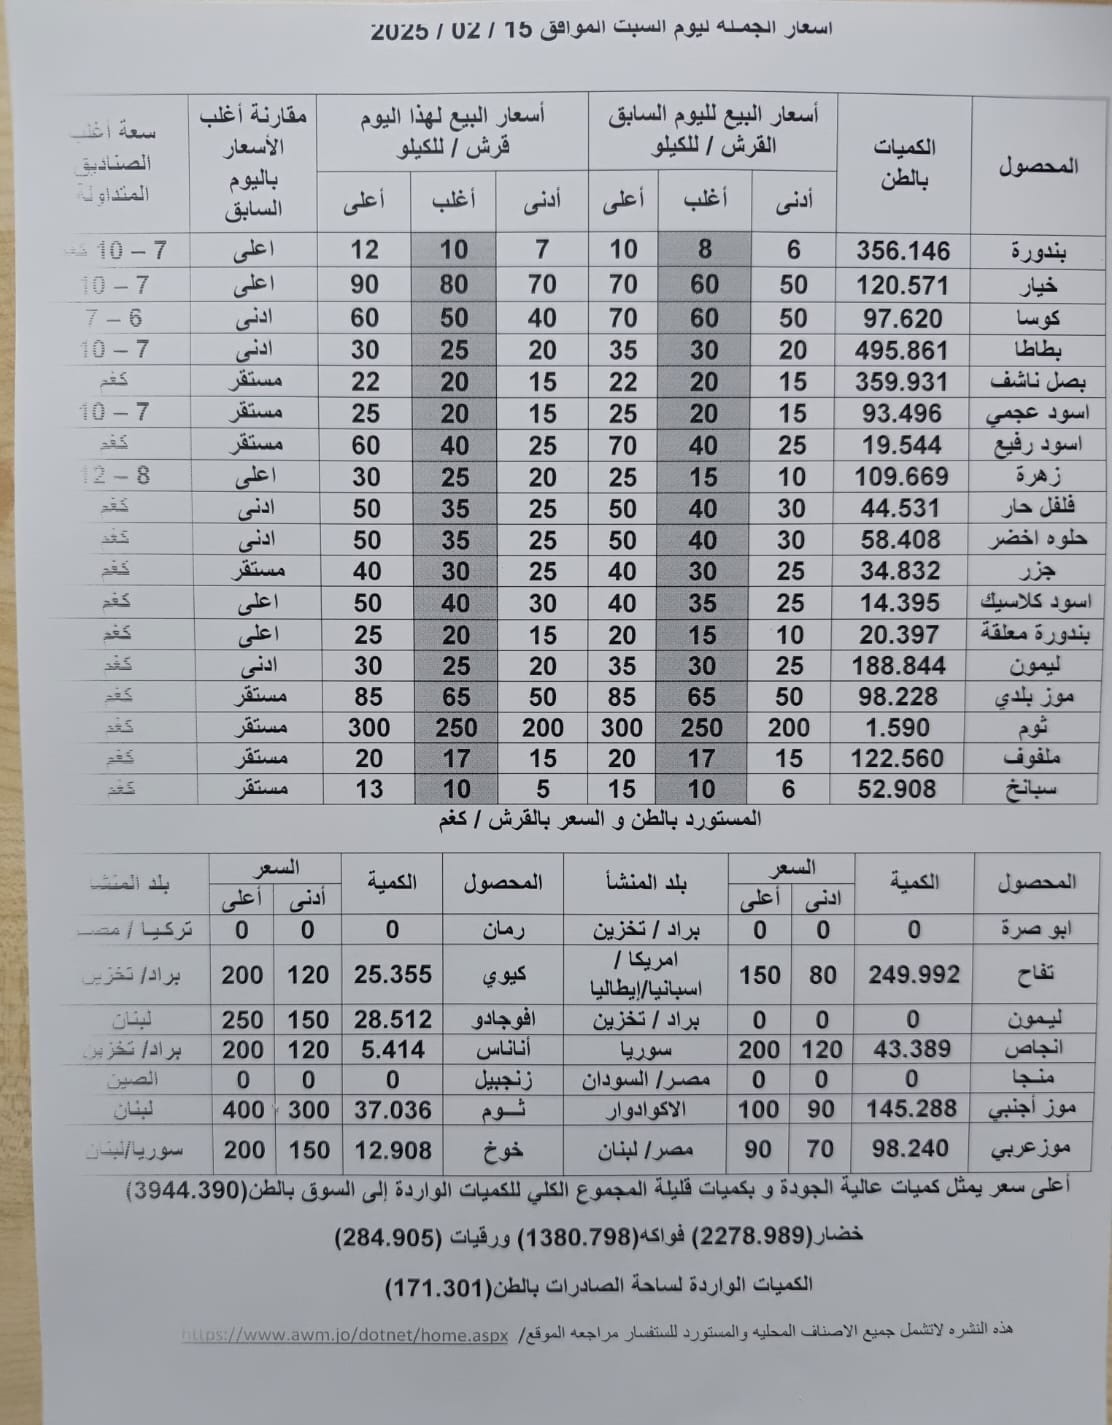 اسعار الجملة ليوم السبت الموافق 15 / 02 / 2025
المحصول الكميات بالطن أسعار البيع لليوم السابق القرش / للكيلو أسعار البيع لهذا اليوم قرش / للكيلو مقارنة أغلب الأسعار باليوم السابق سعة أغلب الصناديق المتداولة
أدنى أغلب أعلى أدنى أغلب أعلى
بندورة 356.146 6 8 10 7 10 12 اعلى 7 – 10
خيار 120.571 50 60 70 70 80 90 اعلى 7 – 10
كوسا 97.620 50 60 70 40 50 60 ادنى 6 – 7
بطاطا 495.861 20 30 35 20 25 30 ادنى 7 – 10
بصل ناشف 359.931 15 20 22 15 20 22 مستقر كغم
اسود عجمي 93.496 15 20 25 15 20 25 مستقر 7 – 10
اسود رفيع 19.544 25 40 70 25 40 60 مستقر كغم
زهرة 109.669 10 15 25 20 25 30 اعلى 8 – 12
فلفل حار 44.531 30 40 50 25 35 50 ادنى كغم
حلوه اخضر 58.408 30 40 50 25 35 50 ادنى كغم
جزر 34.832 25 30 40 25 30 40 مستقر كغم
اسود كلاسيك 14.395 25 35 40 30 40 50 اعلى كغم
بندورة معلقة 20.397 10 15 20 15 20 25 اعلى كغم
ليمون 188.844 25 30 35 20 25 30 ادنى كغم
موز بلدي 98.228 50 65 85 50 65 85 مستقر كغم
ثوم 1.590 200 250 300 200 250 300 مستقر كغم
ملفوف 122.560 15 17 20 15 17 20 مستقر كغم
سبانخ 52.908 6 10 15 5 10 13 مستقر كغم
المستورد بالطن و السعر بالقرش / كغم
المحصول الكمية السعر بلد المنشأ المحصول الكمية السعر بلد المنشا
ادنى أعلى أدنى أعلى
ابو صرة 0 0 0 براد / تخزين رمان 0 0 0 تركيا / مصر
تفاح 249.992 80 150 امريكا / اسبانيا/إيطاليا كيوي 25.355 120 200 براد/ تخزين
ليمون 0 0 0 براد / تخزين افوجادو 28.512 150 250 لبنان
انجاص 43.389 120 200 سوريا أناناس 5.414 120 200 براد/ تخزين
منجا 0 0 0 مصر/ السودان زنجبيل 0 0 0 الصين
موز أجنبي 145.288 90 100 الاكوادوار ثـوم 37.036 300 400 لبنان
موز عربي 98.240 70 90 مصر/ لبنان خوخ 12.908 150 200 سوريا/لبنان
أعلى سعر يمثل كميات عالية الجودة و بكميات قليلة المجموع الكلي للكميات الواردة إلى السوق بالطن(3944.390)
خضار(2278.989) فواكه(1380.798) ورقيات (284.905)
الكميات الواردة لساحة الصادرات بالطن(171.301)
هذه النشره لاتشمل جميع الاصناف المحليه والمستورد للاستفسار مراجعه الموقع/ https://www.awm.jo/dotnet/home.aspx